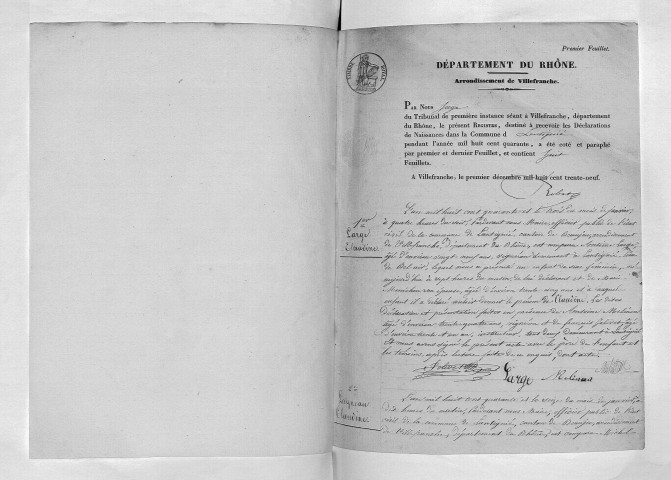 Premier Feuillet.
DÉPARTEMENT DU RHÔNE.
Arrondissement de Villefranche.
PAR NOUS Juge
du Tribunal de première instance séant à Villefranche, département
du Rhône, le présent REGISTRE, destiné à recevoir les Déclarations
de Naissances dans la Commune d Lantignié
pendant l'année mil huit cent quarante, a été coté et paraphé
par premier et dernier Feuillet, et contient huit
Feuillets.
A Villefranche, le premier décembre mil huit cent trente-neuf.
1er
Large
Claudine
L'an mil huit cent quarante et le trois du mois de janvier,
à quatre heures du soir, Pardevant nous Maire, officier public de l'état
civil de la commune de Lantignié, canton de Beaujeu, arrondissement
de Villefranche, département du Rhône, est comparu Antoine Large,
âgé d'environ vingt neuf ans, vigneron demeurant à Lantignié,
de Bel air, lequel nous a présenté un enfant du sexe féminin, né
aujourd'hui à sept heures du matin, de lui déclarant et de Marie
son épouse, âgée d'environ trente cinq ans et auquel
enfant il a déclaré vouloir donner le prénom de Claudine. Les dites
déclaration et présentation faites en présence de Antoine Melinand
âgé d'environ trente quatre ans, vigneron et de françois
d'environ trente et un ans, instituteur, tous deux demeurant à Lantignié
Et nous avons signé le présent acte avec le père de l'enfant et
les témoins, après lecture faite de ce requis, dont acte.
Large Melinand
2e
Claudine
L'an mil huit cent quarante et le seize du mois de janvier, à
dix heures du matin, Pardevant nous Maire, officier public de l'état
civil de la commune de Lantignié, canton de Beaujeu, arrondissement
de Villefranche, département du Rhône, est comparu Michel